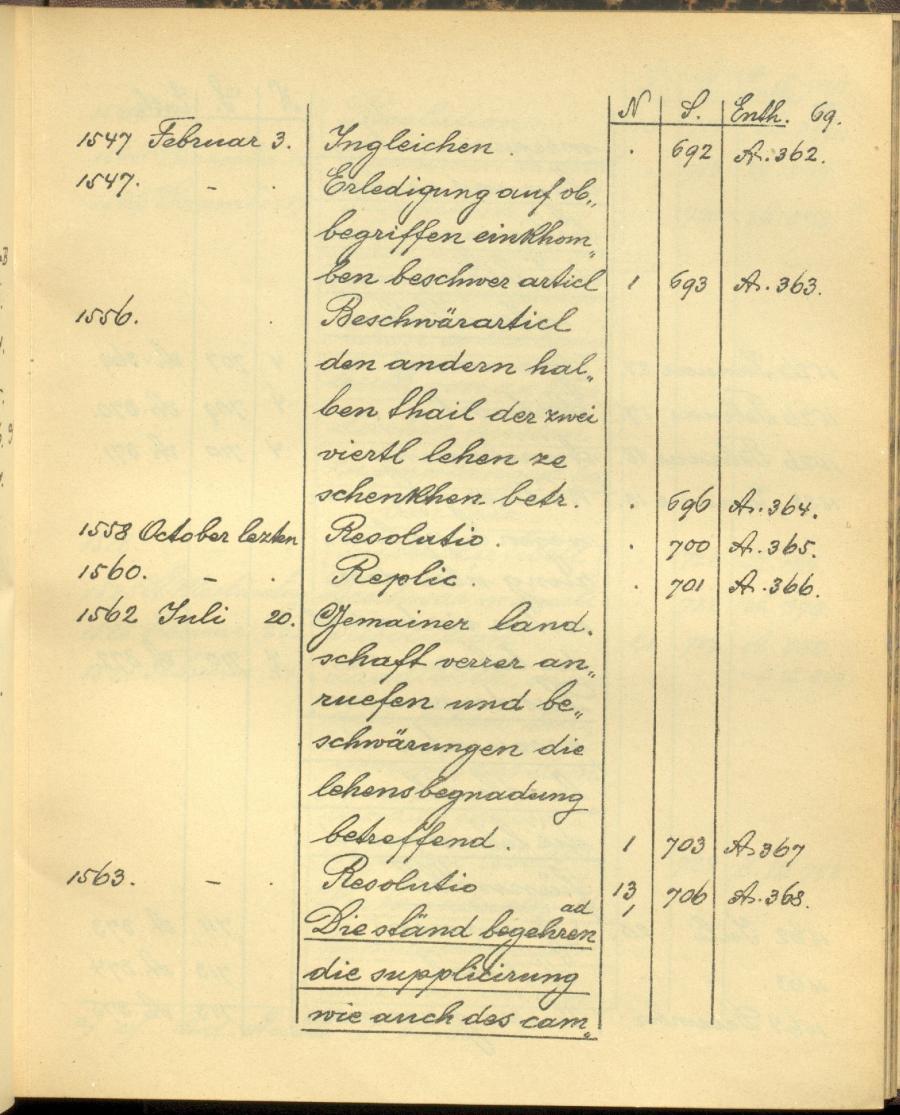 N S. Enth. 69.
1547 Februar 3. Ingleichen . . 692 A. 362.
1547. – . Erledigung auf ob„
begriffen einkhom„
ben beschwer articl 1 693 A. 363.
1556. . Beschwärarticl
den andern hal„
ben thail der zwei
viertl lehen ze
schenkhen betr. . 696 A. 364.
1558 October lezten Resolutio . . 700 A. 365.
1560. – . Replic . 701 A. 366.
1562 Juli 20. Gemainer land.
schaft verrer an„
ruefen und be„
schwärungen die
lehensbegnadung
betreffend . 1 703 A. 367
1563. – . Resolutio 13 706 A. 368.
ad 1
Die ständ begehren
die supplicirung
wie auch des cam„